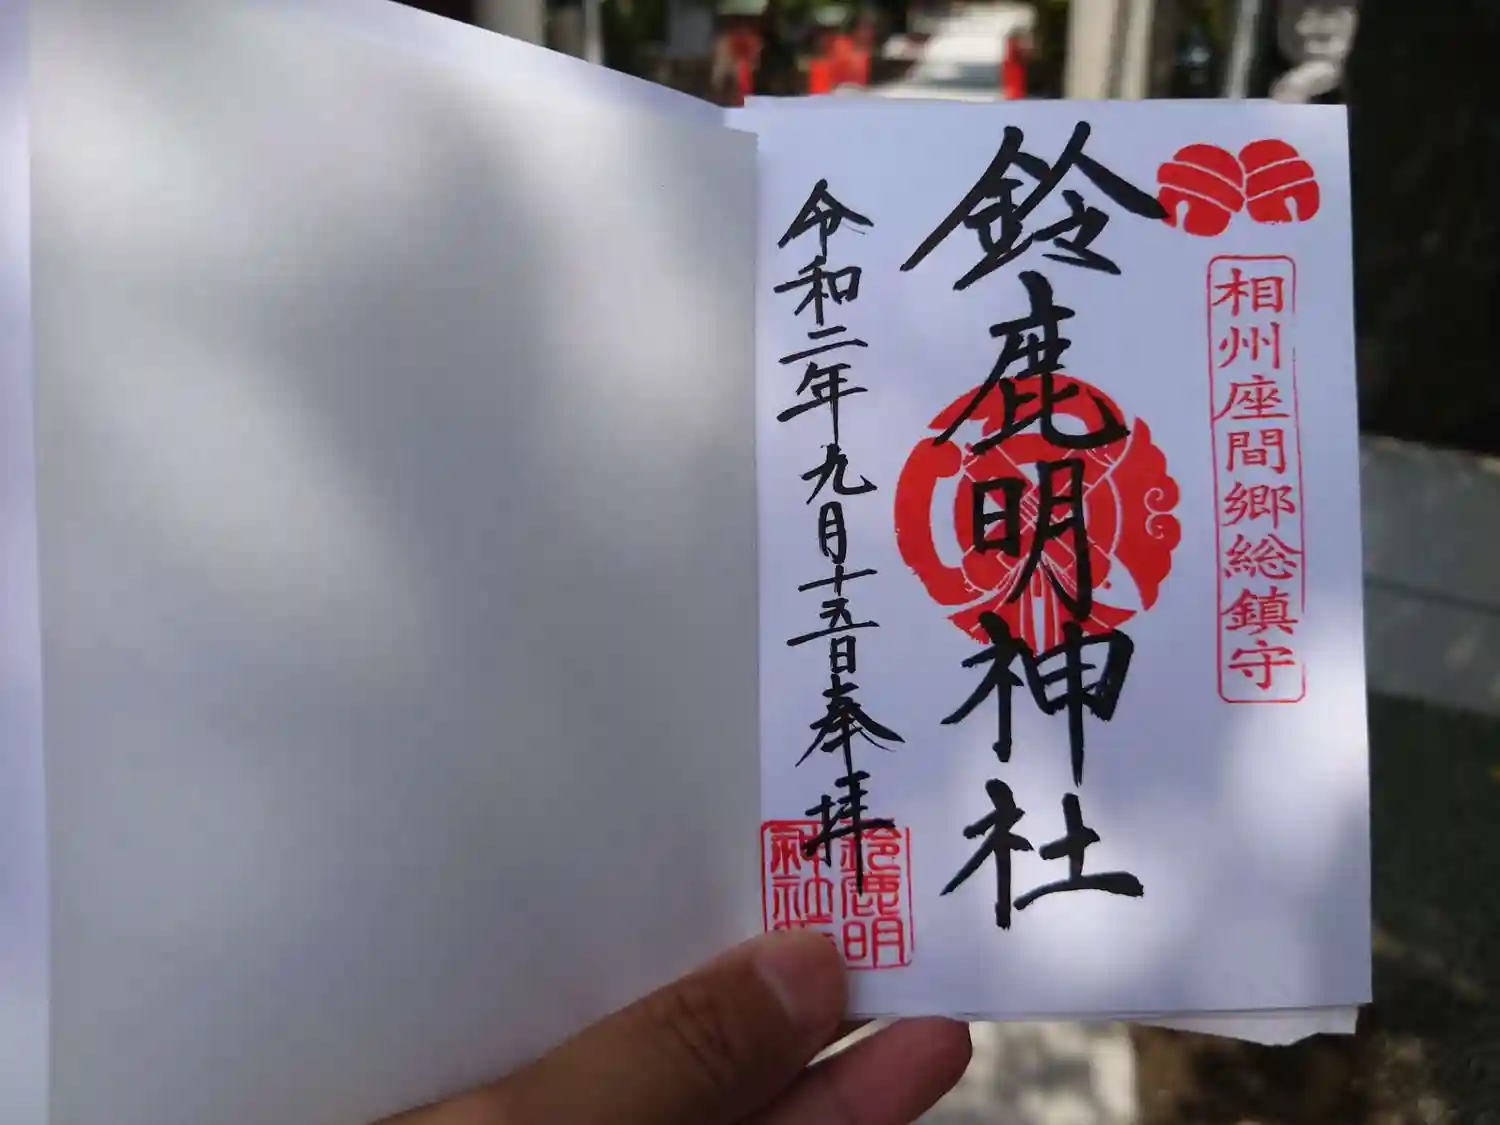 相州座間郷総鎮守
鈴鹿明神社
令和二年九月十五日奉拝
鈴鹿明
神社